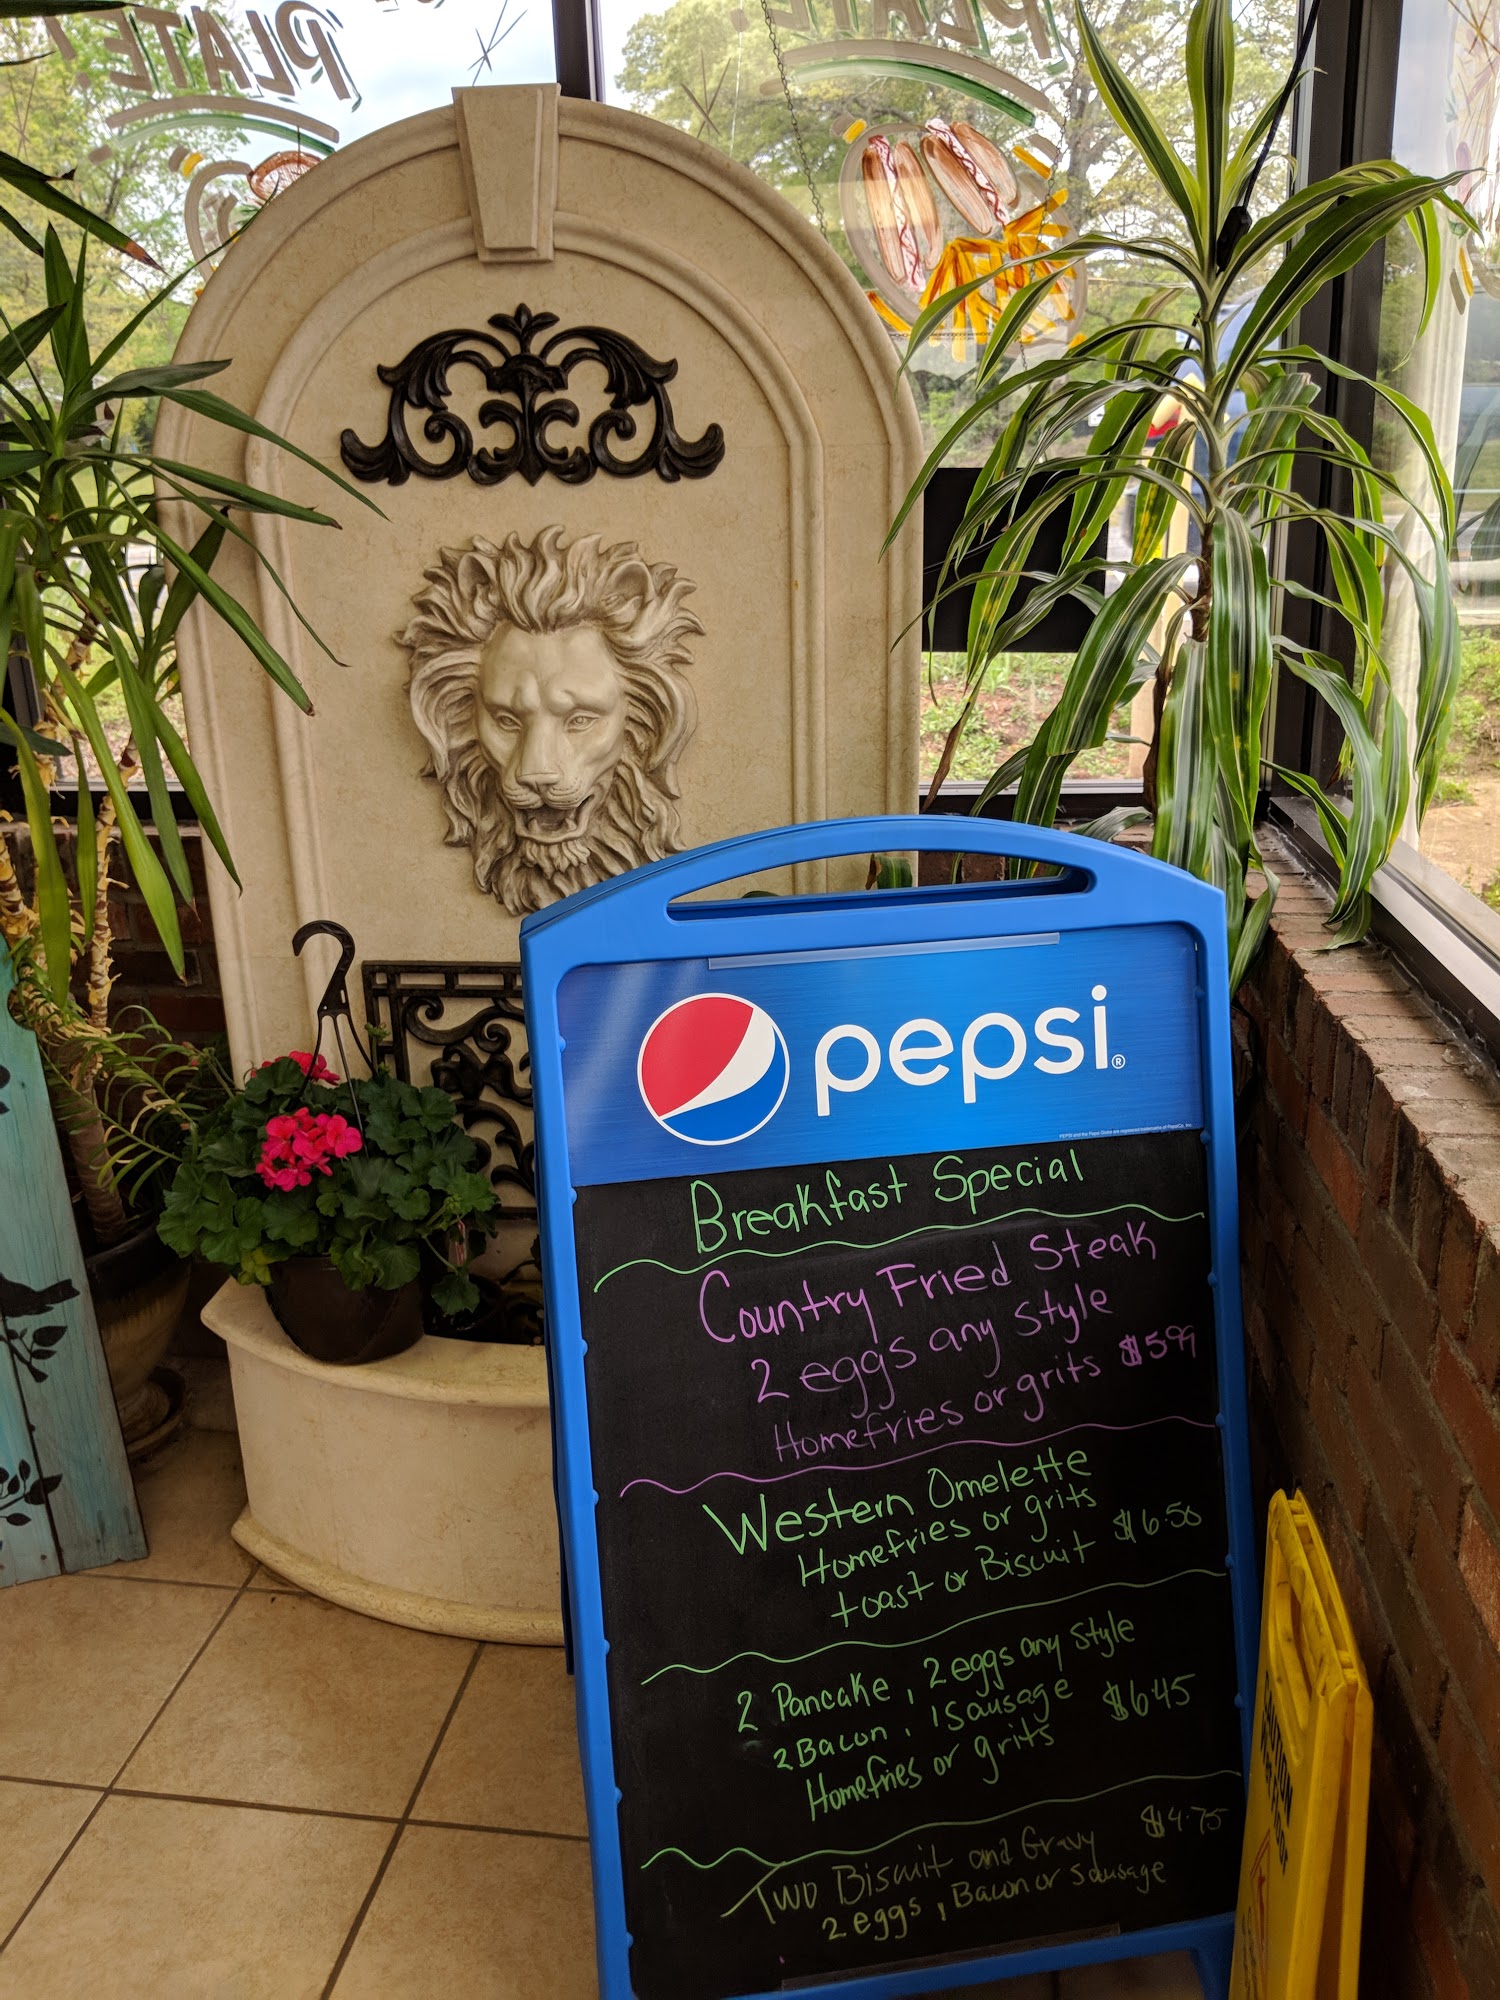 PLATE!
PLATE!
pepsi®
PEPSI and the Pepsi Globe are registered trademarks of PepsiCo, Inc.
Breakfast Special
Country Fried Steak
2 eggs any style
Homefries or grits $5.99
Western Omelette
Homefries or grits
toast or Biscuit $6.50
2 Pancake, 2 eggs any style
2 Bacon, 1 Sausage $6.45
Homefries or grits
Two Biscuit and Gravy $4.75
2 eggs, Bacon or Sausage
CAUTION
Wet Floor